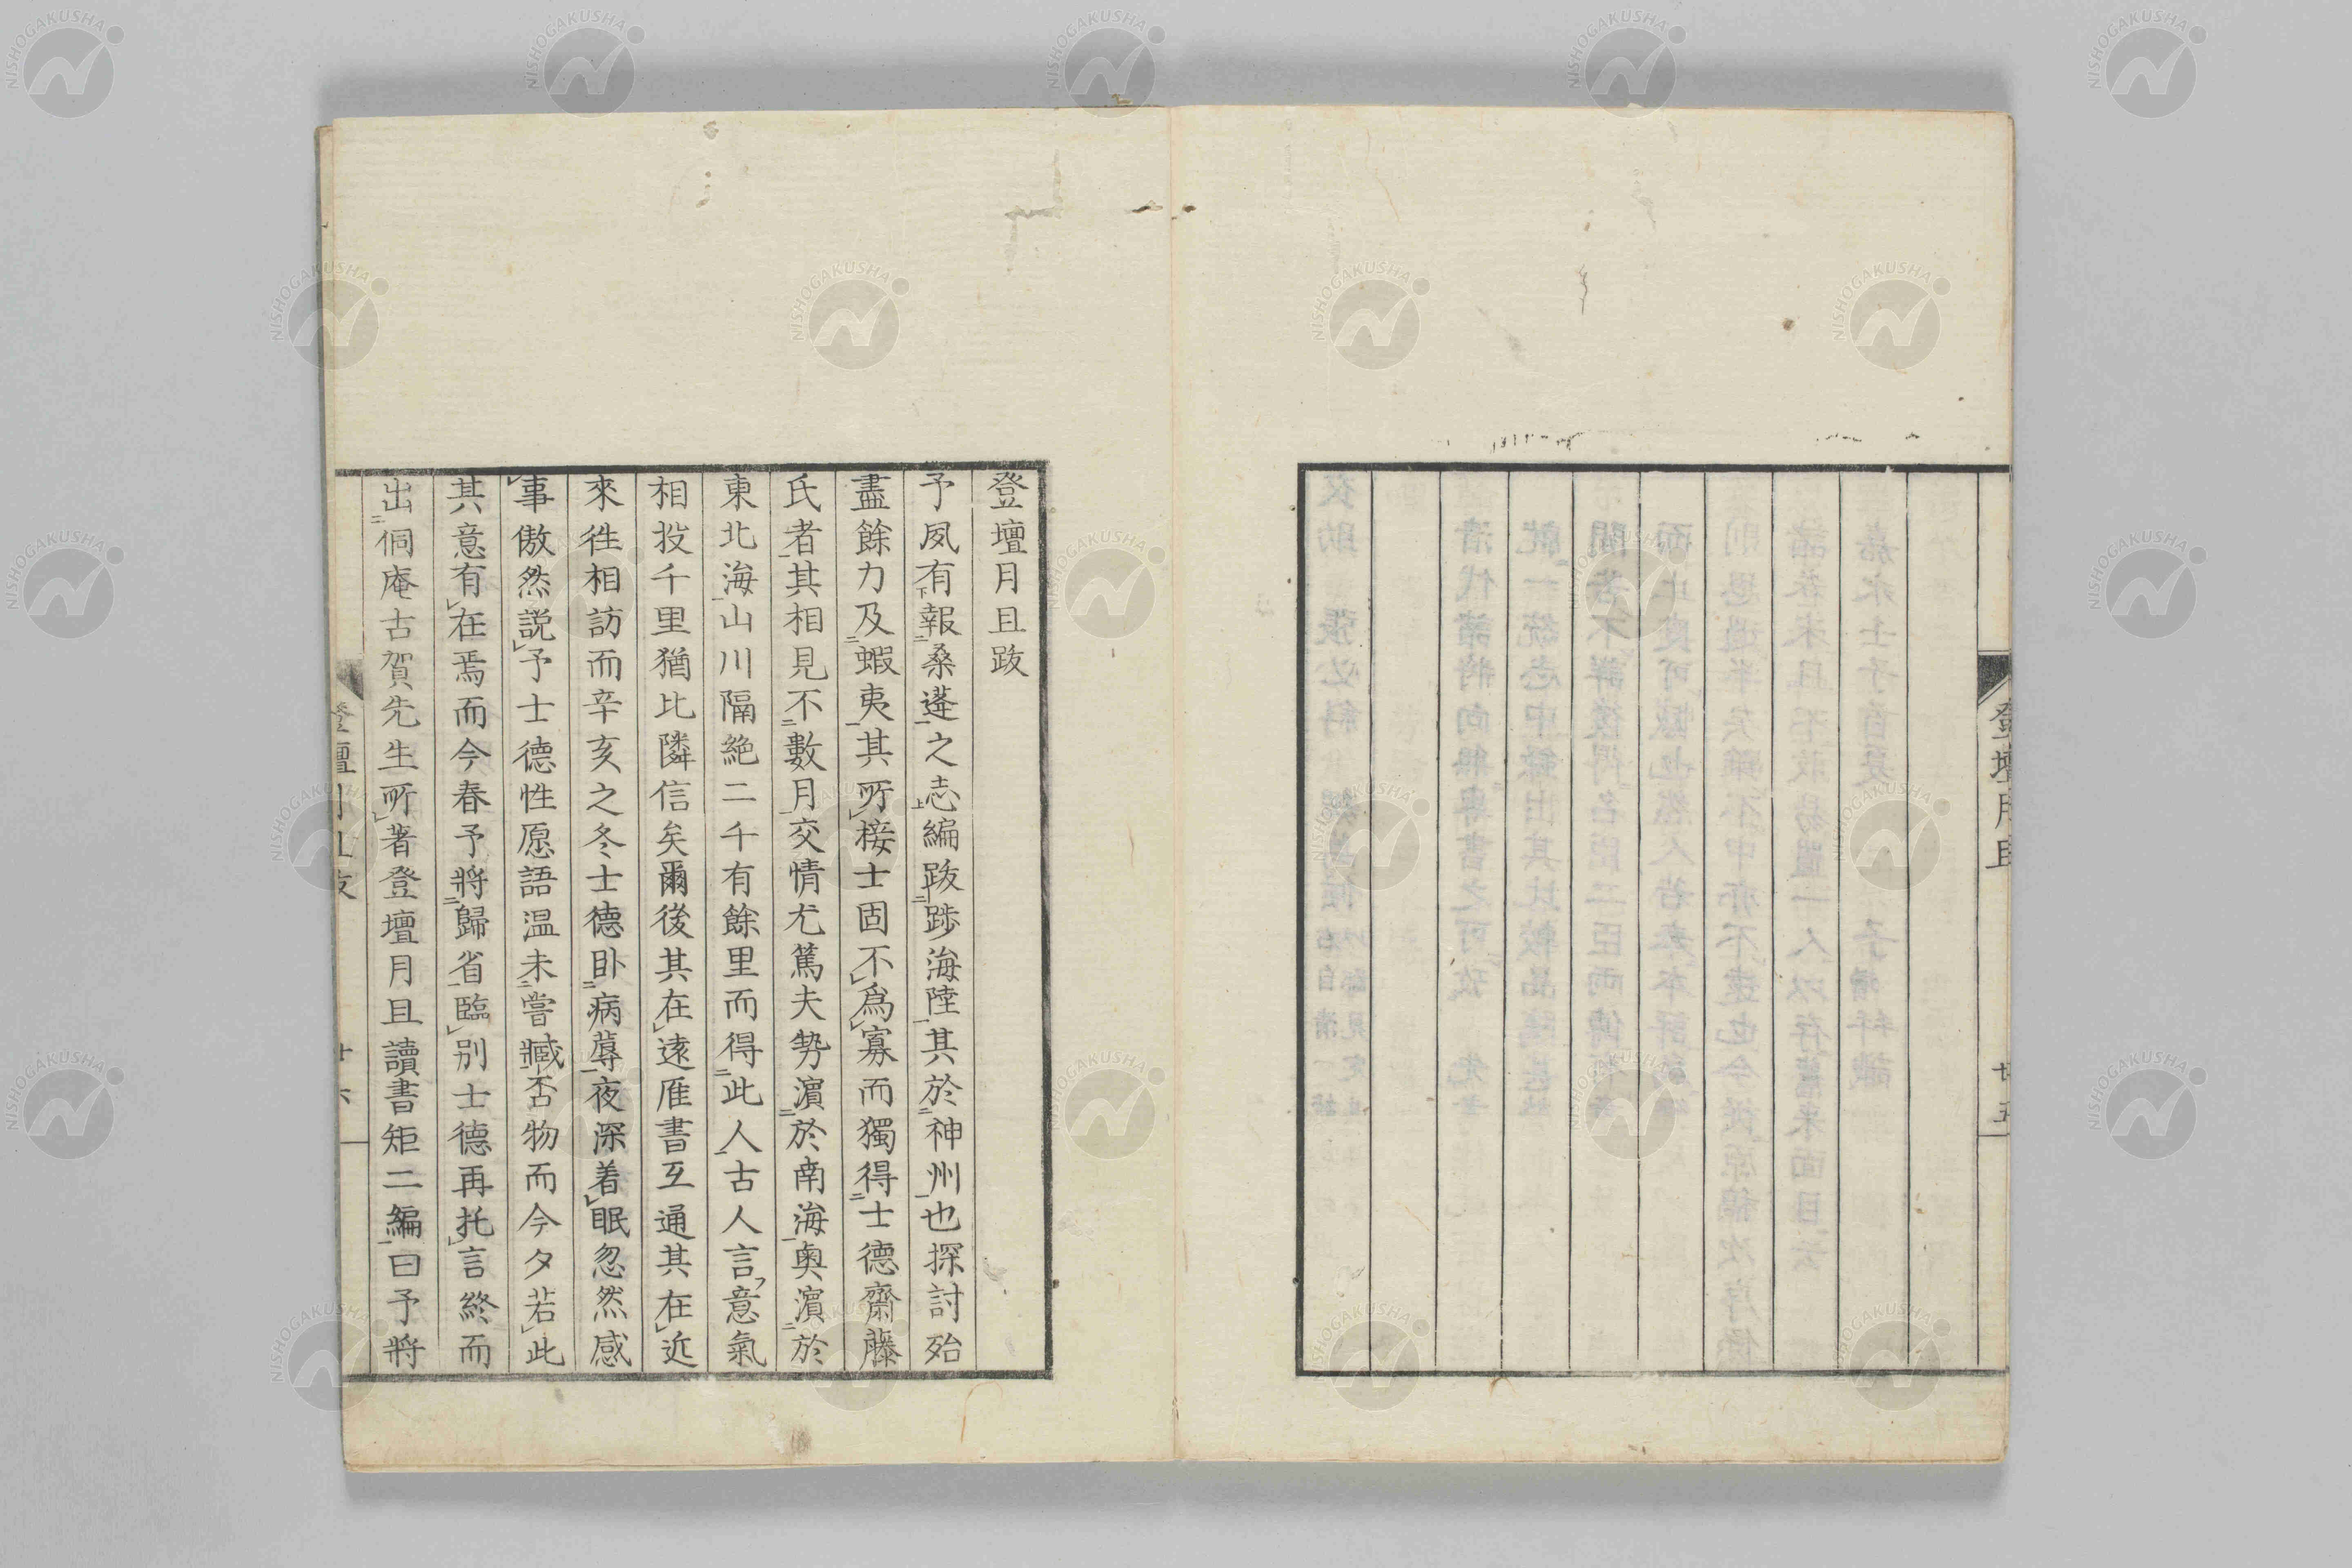 登壇月旦
廿五
登壇月旦跋
予夙有報桑蓬之志編跋踄海陸其於神州也探討殆
盡餘力及蝦夷其所接士固不爲寡而獨得士德齋藤
氏者其相見不數月交情尤篤夫勢濵於南海奥濵於
東北海山川隔絶二千有餘里而得此人古人言意氣
相投千里猶比隣信矣爾後其在遠雁書互通其在近
來徃相訪而辛亥之冬士德卧病蓐夜深着眠忽然感
事傲然説予士德性愿語温未嘗臧否物而今夕若此
其意有在焉而今春予將歸省臨别士德再托言終而
出侗庵古賀先生所著登壇月旦讀書矩二編曰予將
NISHOGAKUSHA